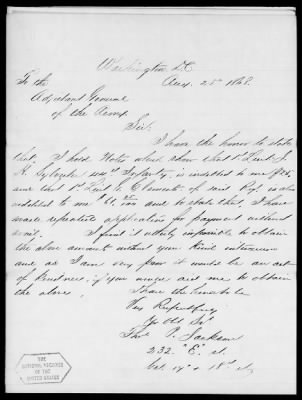 Washington D.C.
Aug. 25" 1868.
To the
Adjutant General
of the Army
Sir:
I have the honor to state
that, I hold Notes which show that 1st Lieut J.
Infantry, is indebted to me
and that 1st Lieut Clements of said Rgt is also
indebted to me and to state that, I have
made repeated application for payment without
avail. I find it utterly impossible to obtain
the above amount without your kind interference
and as I am very poor it would be an act
of kindness, if you would aid me to obtain
the above.
I have the honor to be
Very Respectfuly
Yr Obt Sv't
Thos P. Jackson
232. "E" st
bet 17" & 18" st
THE
NATIONAL ARCHIVES
OF THE
UNITED STATES